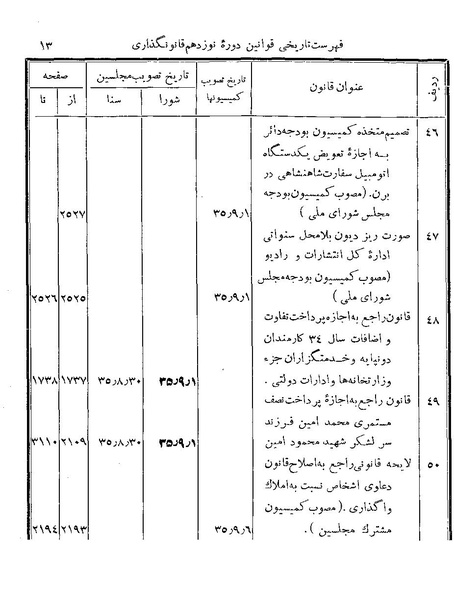 فهرست تاریخی قوانین دورهٔ نوزدهم قانونگذاری ۱۳
ردیف عنوان قانون تاریخ تصویب کمیسیونها تاریخ تصویب مجلسین صفحه
شورا سنا از تا
۴۶ تصمیم متخذه کمیسیون بودجه دائر
به اجازهٔ تعویض یکدستگاه
اتومبیل سفارت شاهنشاهی در
برن. (مصوب کمیسیون بودجه
مجلس شورای ملی) ۳۵٫۹٫۱ ۲۵۲۷
۴۷ صورت ریز دیون بلامحل سنواتی
ادارهٔ کل انتشارات و رادیو
(مصوب کمیسیون بودجه مجلس
شورای ملی) ۳۵٫۹٫۱ ۲۵۲۵ ۲۵۲۶
۴۸ قانون راجع به اجازه پرداخت تفاوت
و اضافات سال ۳۴ کارمندان
دونپایه و خدمتگزاران جزء
وزارتخانه‌ها و ادارات دولتی. ۳۵٫۹٫۱ ۳۵٫۸٫۳۰ ۱۷۳۷ ۱۷۳۸
۴۹ قانون راجع به اجازهٔ پرداخت نصف
مستمری محمد امین فرزند
سرلشکر شهید محمود امین ۳۵٫۹٫۱ ۳۵٫۸٫۳۰ ۲۱۰۹ ۳۱۱۰
۵۰ لایحه قانونی راجع به اصلاح قانون
دعاوی اشخاص نسبت به املاک
واگذاری. (مصوب کمیسیون
مشترک مجلسین). ۳۵٫۹٫۶ ۲۱۹۳ ۲۱۹۴